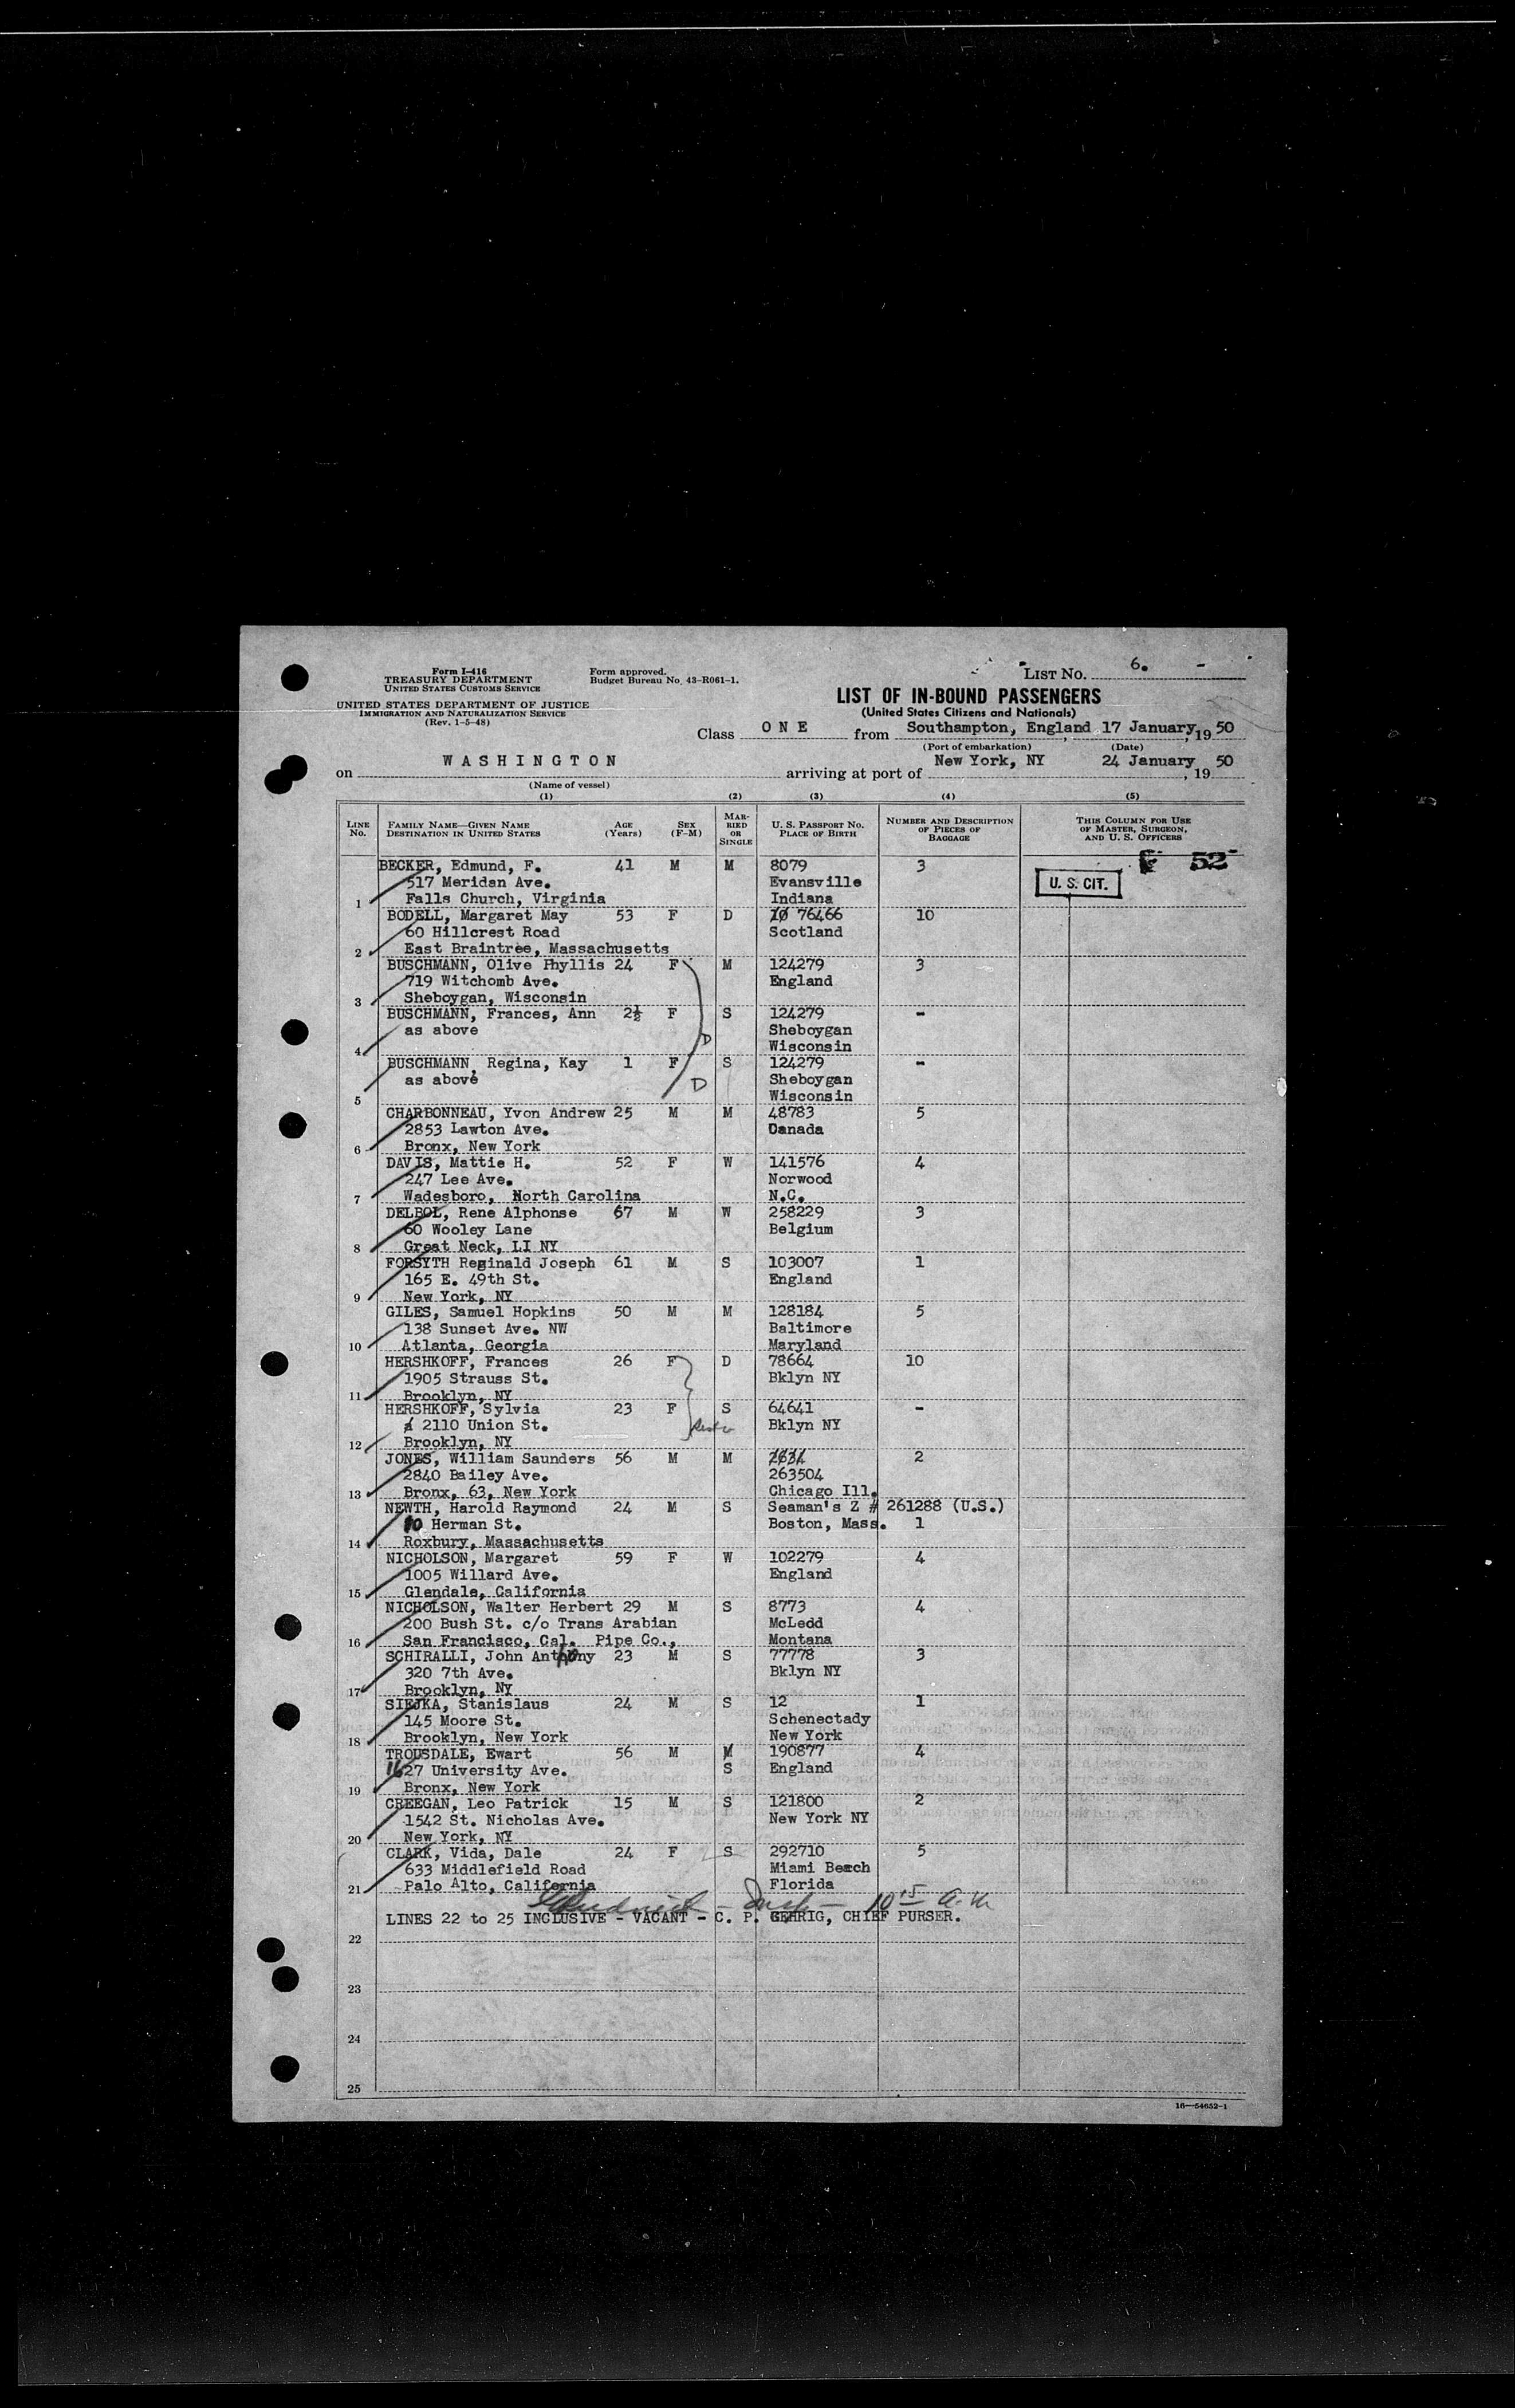 Form I-416
TREASURY DEPARTMENT
UNITED STATES CUSTOMS SERVICE
UNITED STATES DEPARTMENT OF JUSTICE
IMMIGRATION AND NATURALIZATION SERVICE
(Rev. 1-5-48)
Form approved.
Budget Bureau No. 43-R061-1.
LIST NO. 6.
LIST OF IN-BOUND PASSENGERS
(United States Citizens and Nationals)
Class O N E from Southampton, England, 17 January, 19 50
(Port of embarkation) (Date)
on W A S H I N G T O N arriving at port of New York, NY 24 January, 19 50
(Name of vessel)
(1) (2) (3) (4) (5)
LINE NO. FAMILY NAME—GIVEN NAME DESTINATION IN UNITED STATES AGE (Years) SEX (F-M) MARRIED OR SINGLE U. S. PASSPORT NO. PLACE OF BIRTH NUMBER AND DESCRIPTION OF PIECES OF BAGGAGE THIS COLUMN FOR USE OF MASTER, SURGEON, AND U. S. OFFICERS
BECKER, Edmund, F. 41 M M 8079 3 52
517 Meridan Ave. Evansville U. S. CIT.
1 Falls Church, Virginia Indiana
BODELL, Margaret May 53 F D 76466 10
60 Hillcrest Road Scotland
2 East Braintree, Massachusetts
BUSCHMANN, Olive Phyllis 24 F M 124279 3
719 Witchomb Ave. England
3 Sheboygan, Wisconsin
BUSCHMANN, Frances, Ann 2½ F S 124279 -
as above Sheboygan
4 Wisconsin
BUSCHMANN, Regina, Kay 1 F S 124279 -
as above D Sheboygan
5 Wisconsin
CHARBONNEAU, Yvon Andrew 25 M M 48783 5
2853 Lawton Ave. Canada
6 Bronx, New York
DAVIS, Mattie H. 52 F W 141576 4
247 Lee Ave. Norwood
7 Wadesboro, North Carolina N.C.
DELBOL, Rene Alphonse 67 M W 258229 3
60 Wooley Lane Belgium
8 Great Neck, LI NY
FORSYTH Reginald Joseph 61 M S 103007 1
165 E. 49th St. England
9 New York, NY
GILES, Samuel Hopkins 50 M M 128184 5
138 Sunset Ave. NW Baltimore
10 Atlanta, Georgia Maryland
HERSHKOFF, Frances 26 F D 78664 10
1905 Strauss St. Bklyn NY
11 Brooklyn, NY
HERSHKOFF, Sylvia 23 F S 64641 -
2110 Union St. Bklyn NY
12 Brooklyn, NY
JONES, William Saunders 56 M M 2
2840 Bailey Ave. 263504
13 Bronx, 63, New York Chicago Ill.
NEWTH, Harold Raymond 24 M S Seaman's Z # 261288 (U.S.)
10 Herman St. Boston, Mass. 1
14 Roxbury, Massachusetts
NICHOLSON, Margaret 59 F W 102279 4
1005 Willard Ave. England
15 Glendale, California
NICHOLSON, Walter Herbert 29 M S 8773 4
200 Bush St. c/o Trans Arabian McLedd
16 San Francisco, Cal. Pipe Co., Montana
SCHIRALLI, John Anthony 23 M S 77778 3
320 7th Ave. Bklyn NY
17 Brooklyn, NY
SIEJKA, Stanislaus 24 M S 12 1
145 Moore St. Schenectady
18 Brooklyn, New York New York
TROUSDALE, Ewart 56 M M 190877 4
1627 University Ave. S England
19 Bronx, New York
CREEGAN, Leo Patrick 15 M S 121800 2
1542 St. Nicholas Ave. New York NY
20 New York, NY
CLARK, Vida, Dale 24 F S 292710 5
633 Middlefield Road Miami Beach
21 Palo Alto, California Florida
10 15 a.m
LINES 22 to 25 INCLUSIVE - VACANT - C. P. GEHRIG, CHIEF PURSER.
22
23
24
25
16—54652-1